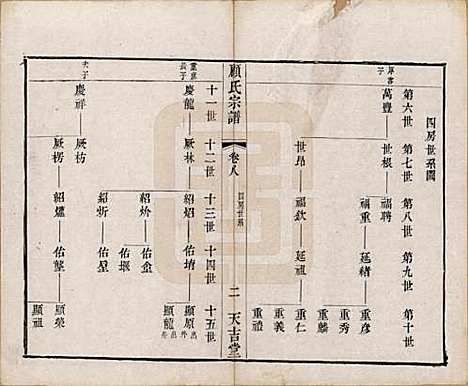 四房世系圖
第六世 第七世 第八世 第九世 第十世
厚齋子
萬豐 世根 福聘
福重 延緒 重彥
重秀
重麟
世昂 福欽 延祖 重仁
重義
重禮
顧氏宗譜 卷八 四房世系 二 天吉堂
十一世 十二世 十三世 十四世 十五世
重彥長子
慶龍 厥林 紹炤 佑堉 顯原 出外
顯龍 出外
紹炌 佑金
佑堰
紹炘 佑星
次子
慶祥 厥枋
厥楞 紹爐 佑塋 顯榮
顯祖